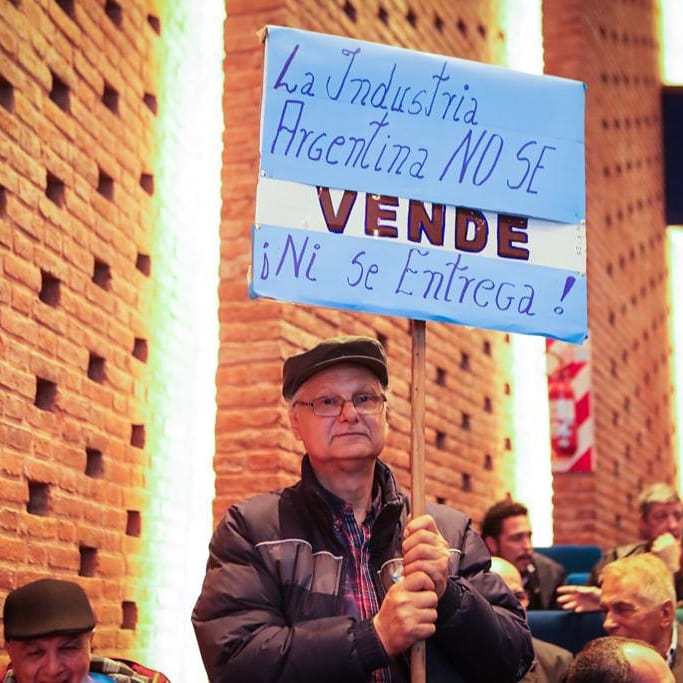 La Industria
Argentina NO SE
VENDE
¡Ni se Entrega!